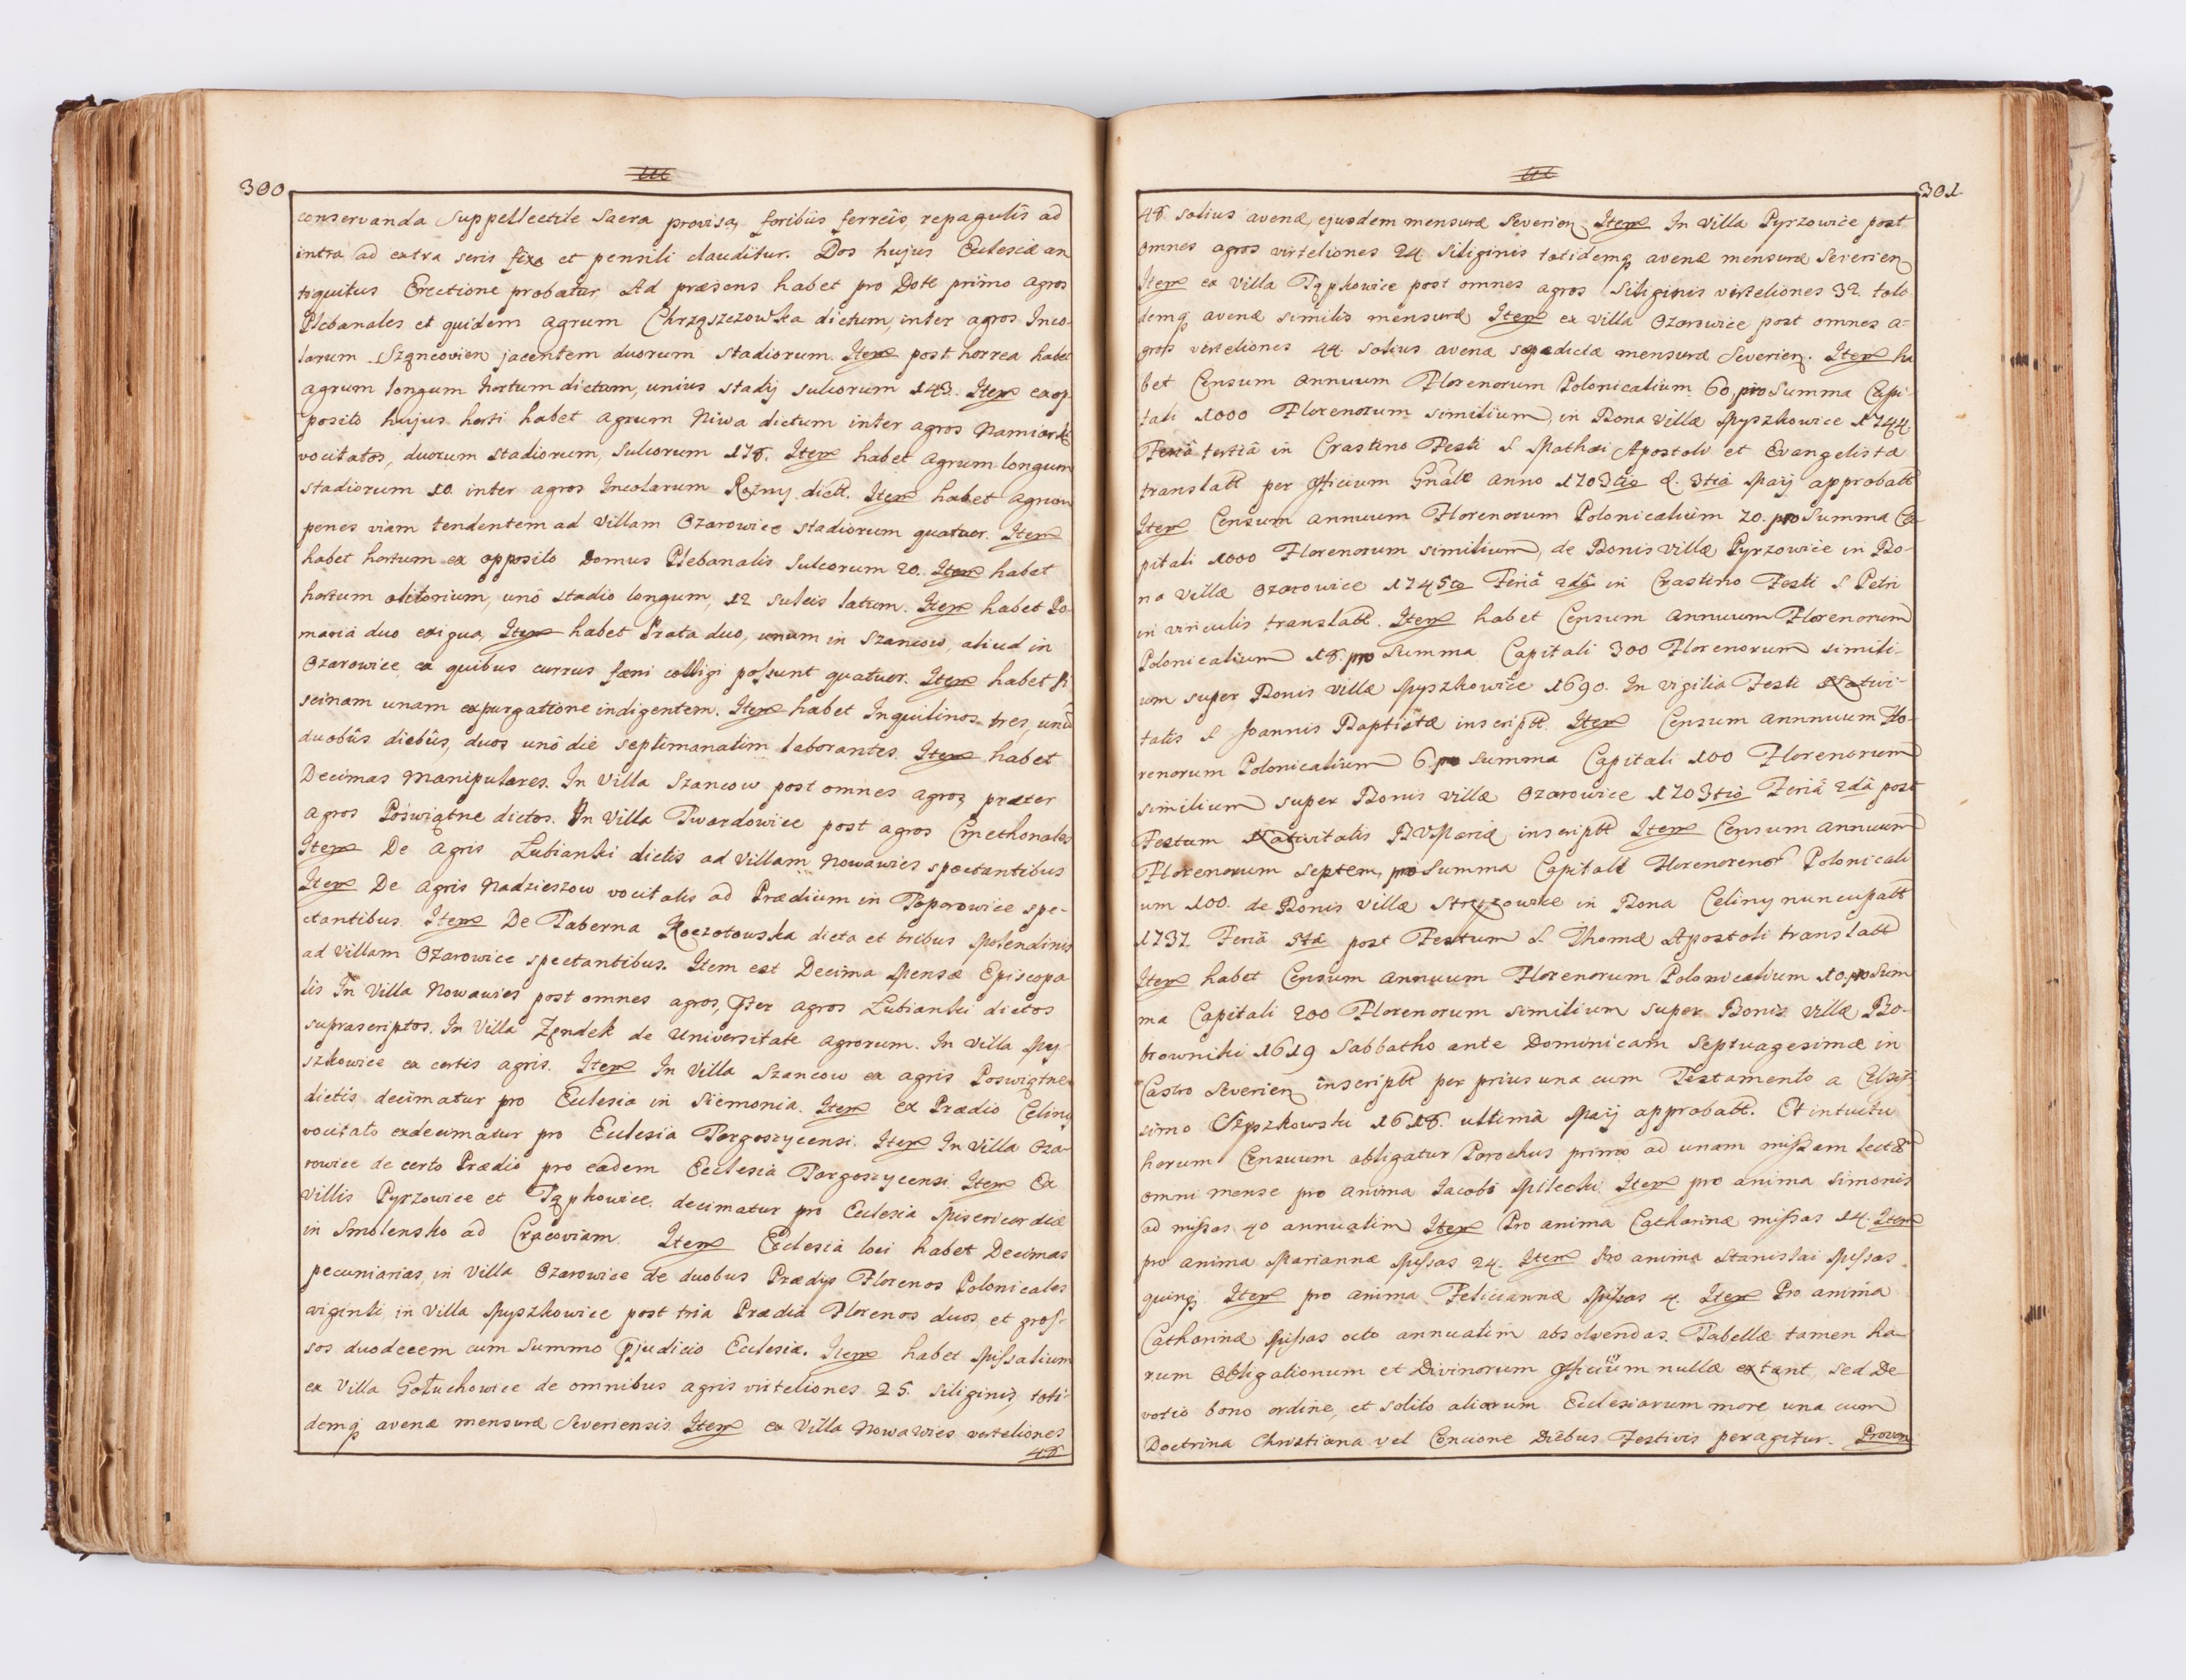 300
conservanda Suppellectile Sacra provisa, foribus ferreis, repagulis ad
intra ad extra seris fixa et pensili clauditur. Dos hujus Eclesiæ an
tiquitus Erectione probatur. Ad præsens habet pro Dote primo agros
Plebanales et quidem agrum Chrząszczowska dictum, inter agros Inco-
larum Sząncovien jacentem duorum stadiorum. Item post horrea habet
agrum longum hortum dictum, unius stadij sulcorum 143. Item ex op-
posito hujus horti habet agrum Niwa dictum inter agros Namiarki
vocitatos, duorum stadiorum, sulcorum 178. Item habet agrum longum
stadiorum 10 inter agros Incolarum Rozny dict. Item habet agrum
penes viam tendentem ad Villam Ozarowice stadiorum quatuor. Item
habet hortum ex opposito Domus Plebanalis Sulcorum 20. Item habet
hortum olitorium, unô stadio longum, 12 sulcis latum. Item habet Po-
maria duo exigua, Item habet Prata duo, unum in Szancow, aliud in
Ozarowice, ex quibus currus fæni colligi possunt quatuor. Item habet Pi
scinam unam expurgatione indigentem. Item habet Inquilinos tres, unû
duobûs diebûs, duos unô die septimanatim laborantes. Item habet
Decimas Manipulares. In Villa Szancow post omnes agros, præter
agros Poświątne dictos. In Villa Twardowice post agros Cmethonales
Item De Agris Lubianki dictis ad Villam Nowawies spectantibus
Item De agris Nadzieszow vocitatis ad Prædium in Toporowice spe-
ctantibus. Item De Taberna Koczotowska dicta et tribus Molendinis
ad Villam Ozarowice spectantibus. Item est Decima Mensæ Episcopa
lis In Villa Nowawies post omnes agros, ꝓter agros Lubianki dictos
suprascriptos. In Villa Zendek de Universitate agrorum. In Villa My-
szkowice ex certis agris. Item In Villa Szancow ex agris Poswiątne
dictis decimatur pro Eclesia in Siemonia. Item ex Prædio Celiny
vocitato exdecimatur pro Eclesia Targoszycensi. Item In Villa Oza-
rowice de certo Prædio pro eadem Ecclesia Targoszycensi. Item Ex
Villis Pyrzowice et Tąpkowice decimatur pro Eclesia Misericordiæ
in Smolensko ad Cracoviam. Item Eclesia loci habet Decimas
pecuniarias, in Villa Ozarowice de duobus Prædijs Florenos Polonicales
viginti, in Villa Myszkowice post tria Prædia Florenos duos, et gros-
sos duodecem cum Summo ꝓjudicio Eclesiæ. Item habet Missalium
ex Villa Gołuchowice de omnibus agris virteliones 25. siliginis, toti-
demq avenæ mensuræ Severiensis. Item ex Villa Nowawies verteliones
48
301
48. solius avenæ, ejusdem mensuræ Severien. Item In Villa Pyrzowice post
omnes agros virteliones 24 Siliginis totidemq avenæ mensuræ Severien
Item ex Villa Tąpkowice post omnes agros Siliginis virteliones 32 toti
demq avenæ similis mensuræ Item ex Villa Ozarowice post omnes a=
gros verteliones 44 solius avenæ sæpedictæ mensuræ Severien. Item ha
bet Censum annuum Florenorum Polonicalium 60, pro Summa Capi-
tali 1000 Florenorum similium, in Bona Villæ Myszkowice 1744
Feriâ tertiâ in Crastino Festi S Mathæi Apostoli et Evangelistæ
translatt per Officium Gnãle anno 1703tio d. 3tia Maij approbatt
Item Censum annuum Florenorum Polonicalium 70. pro Summa Ca
pitali 1000 Florenorum similium, de Bonis Villæ Pyrzowice in Bo-
na Villæ Ozarowice 1745to Feriâ 2dâ in Crastino Festi S Petri
in vinculis translatt. Item habet Censum annuum Florenorum
Polonicalium 18. pro Summa Capitali 300 Florenorum simili-
um super Bonis Villæ Myszkowice 1690. In Vigilia Festi Nativi-
tatis S Joannis Baptistæ inscriptt. Item Censum annnuum Flo-
renorum Polonicalium 6. pro Summa Capitali 100 Florenorum
similium super Bonis Villæ Ozarowice 1703tio Feriâ 2dâ post
Festum Nativitatis BVMariæ inscriptt Item Censum annuum
Florenorum septem, pro Summa Capitali Polonicali
um 100. de Bonis Villæ in Bona Celiny nuncupatt
1737 Feriâ post Festum S Thomæ Apostoli translatt
Item habet Censum annuum Florenorum Polonicalium 10. pro Sum
ma Capitali 200 Florenorum similium super Bonis Villæ Bo-
browniki 1619 Sabbatho ante Dominicam Septuagesimæ in
Castro Severien inscriptt per prius una cum Testamento a Celsis-
simo Szyszkowski 1618. ultimâ Maij approbatt. Et intuitu
horum Censuum obligatur Parochus primo ad unam missam lectã
omni mense pro anima Jacobi Pilecki. Item pro anima Simonis
ad missas 40 annuatim Item Pro anima Catharinæ missas 14. Item
pro anima Mariannæ Missas 24. Item Pro anima Stanislai Missas
quinq. Item pro anima Feliciannæ Missas 4. Item Pro anima
Catharinæ Missas octo annuatim absolvendas. Tabellæ tamen ha-
rum Obligationum et Divinorum Officiorum nullæ extant, sed De-
votio bono ordine, et solito aliarum Ecclesiarum more una cum
Doctrina Christiana vel Concione Diebus Festivis peragitur. Proven